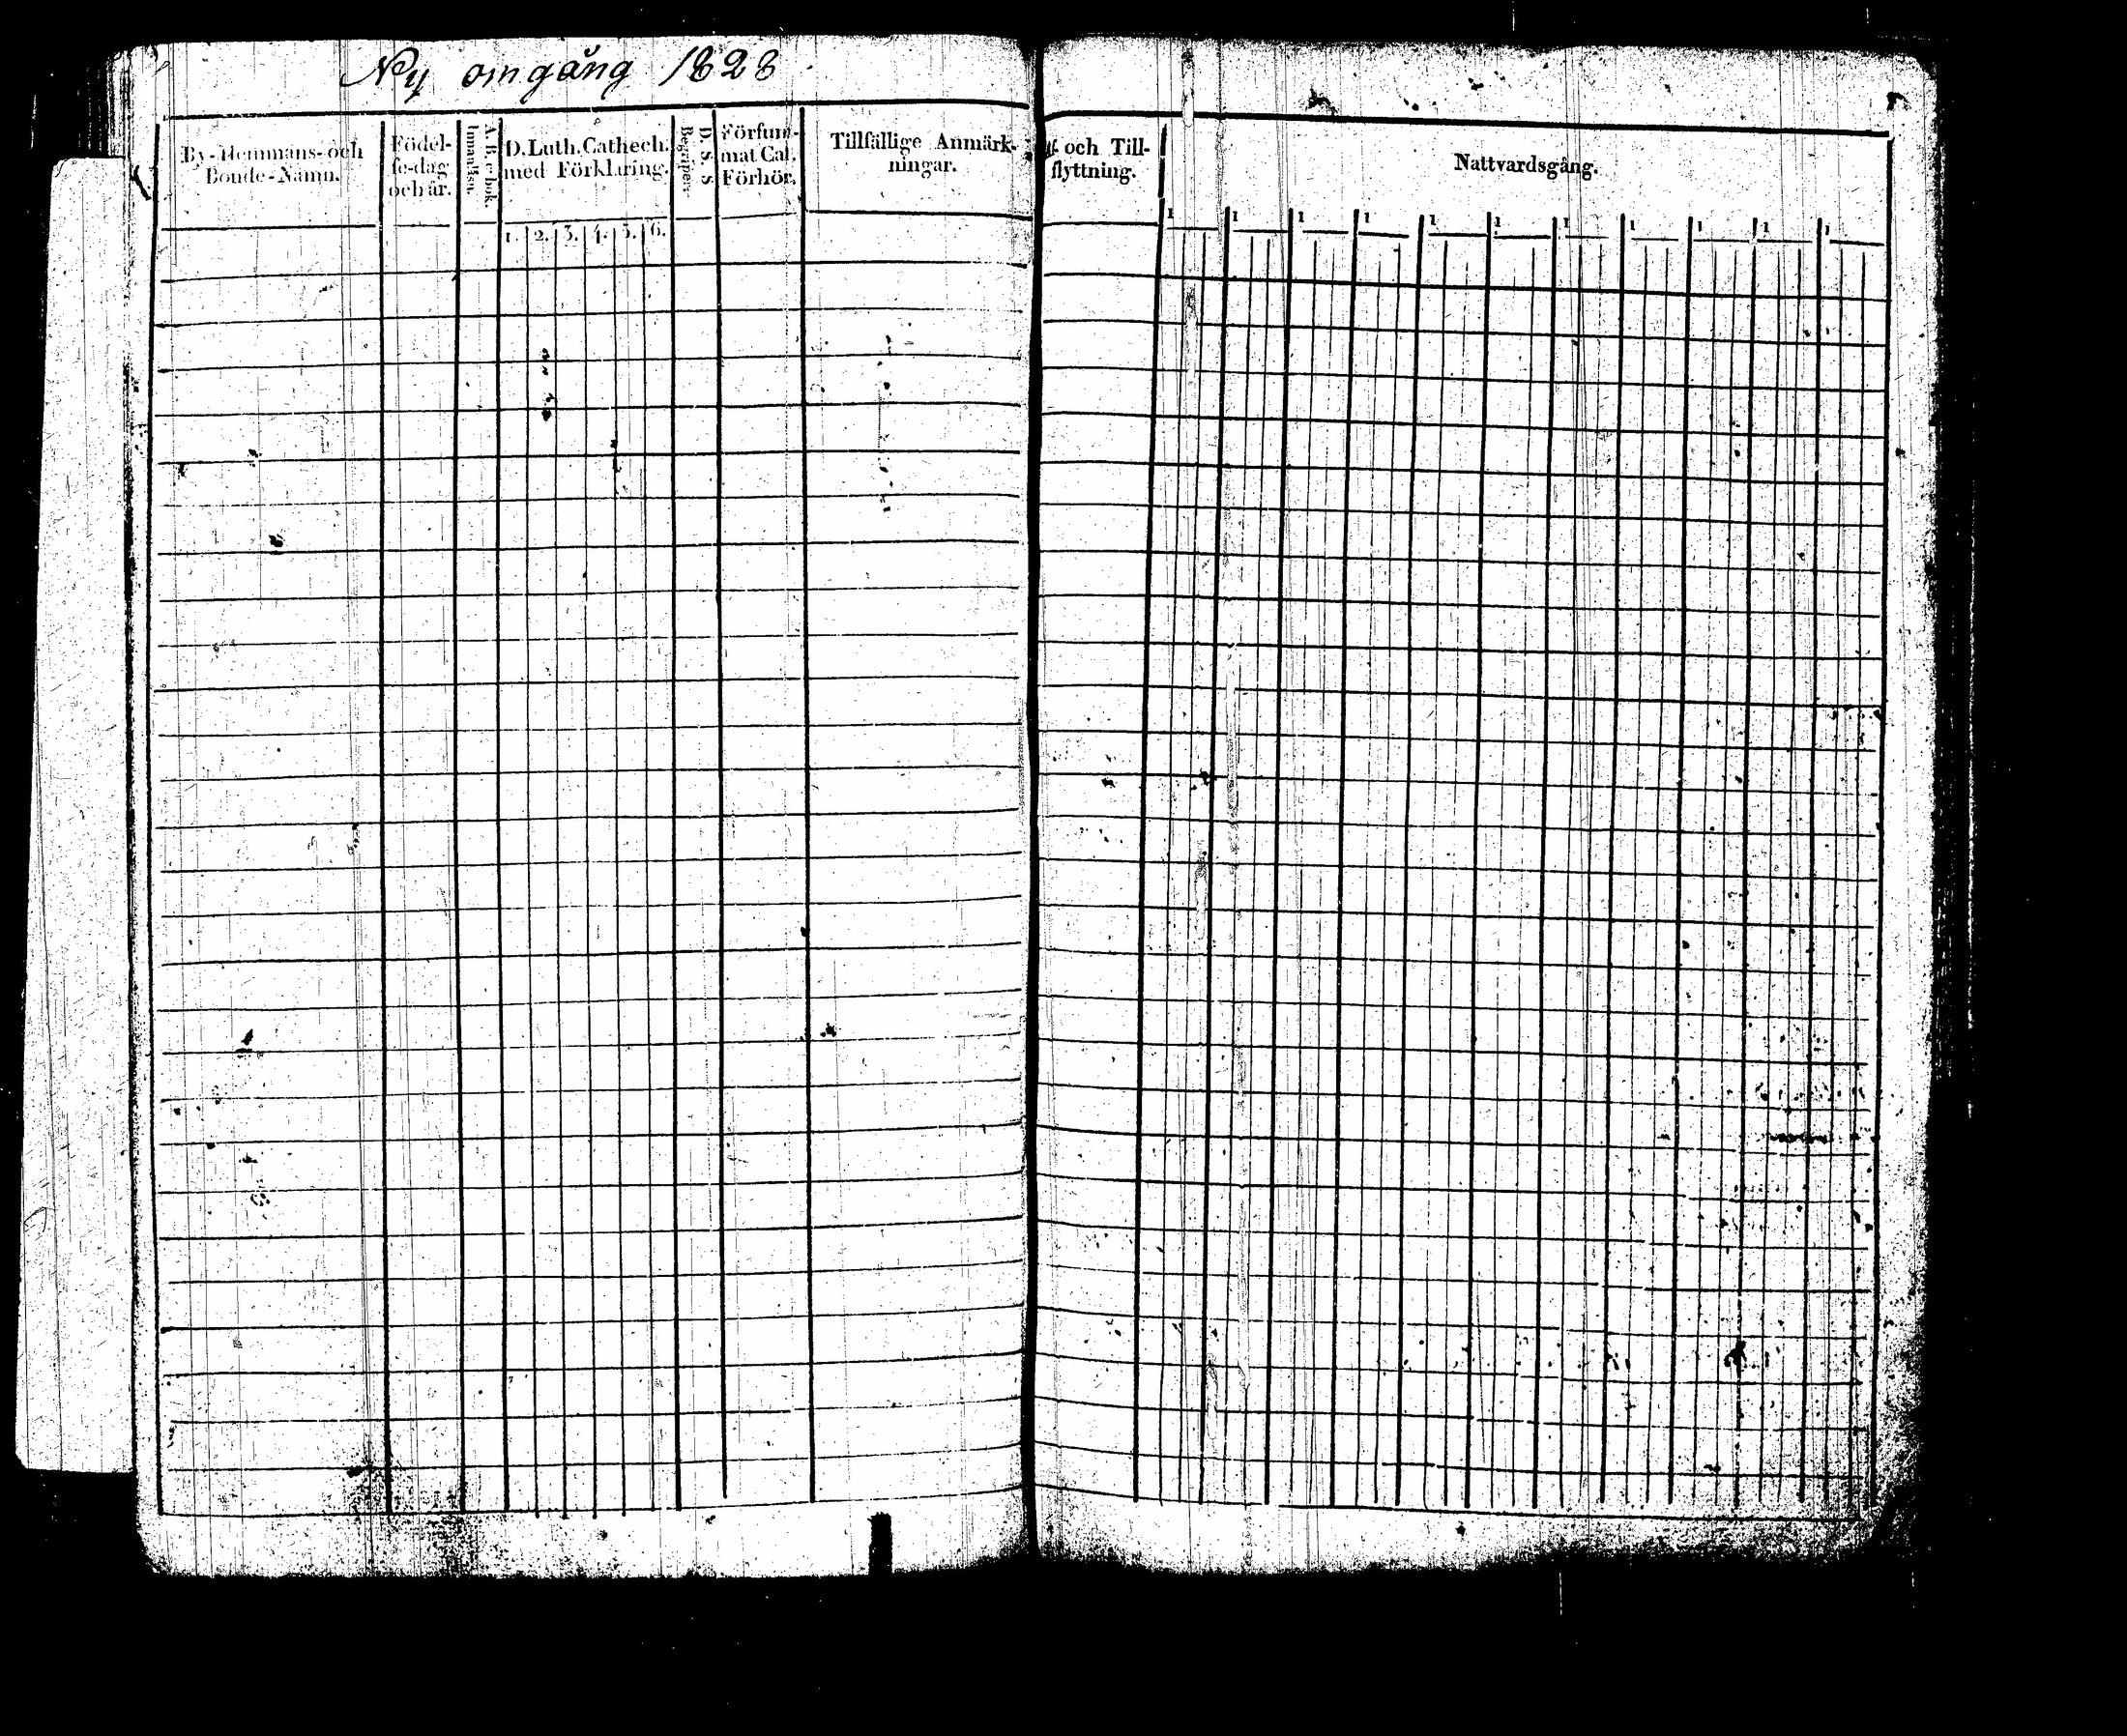 Ny omgång 1828
By-Hemmans- och
Bonde-Namn.
Födel-
se-dag
och år.
A.B.c-bok.
Innanläsn.
D. Luth. Cathech.
med Förklaring.
1. 2. 3. 4. 5. 6.
D. S. S
Begriper.
Försum-
mat Cat.
Förhör.
Tillfällige Anmärk-
ningar.
och Till-
flyttning.
Nattvardsgång.
1 1 1 1 1 1 1 1 1 1 1